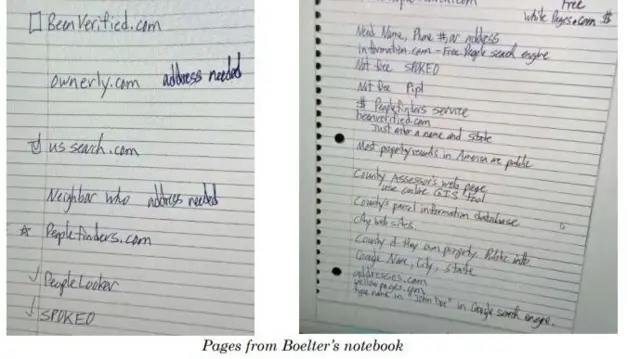 BeenVerified.com
ownerly.com address needed
us search.com
Neighbor Who address needed
Peoplefinders.com
PeopleLooker
SPOKEO
Free
white Pages.com $
Need Name, Phone #, or address
Information.com - Free People search engine
Not Free SPOKEO
Not Free Pipl
$ Peoplefinders service
beenverified.com
Just enter a name and state
Most property records in America are public
County Assessor's web page
use online GIS tool
County's parcel information database
city web sites.
County if they own property. Public info
Google Name, City, State
addresses.com
yellowpages.com
type name in "John Doe" in Google search engine.
Pages from Boelter's notebook